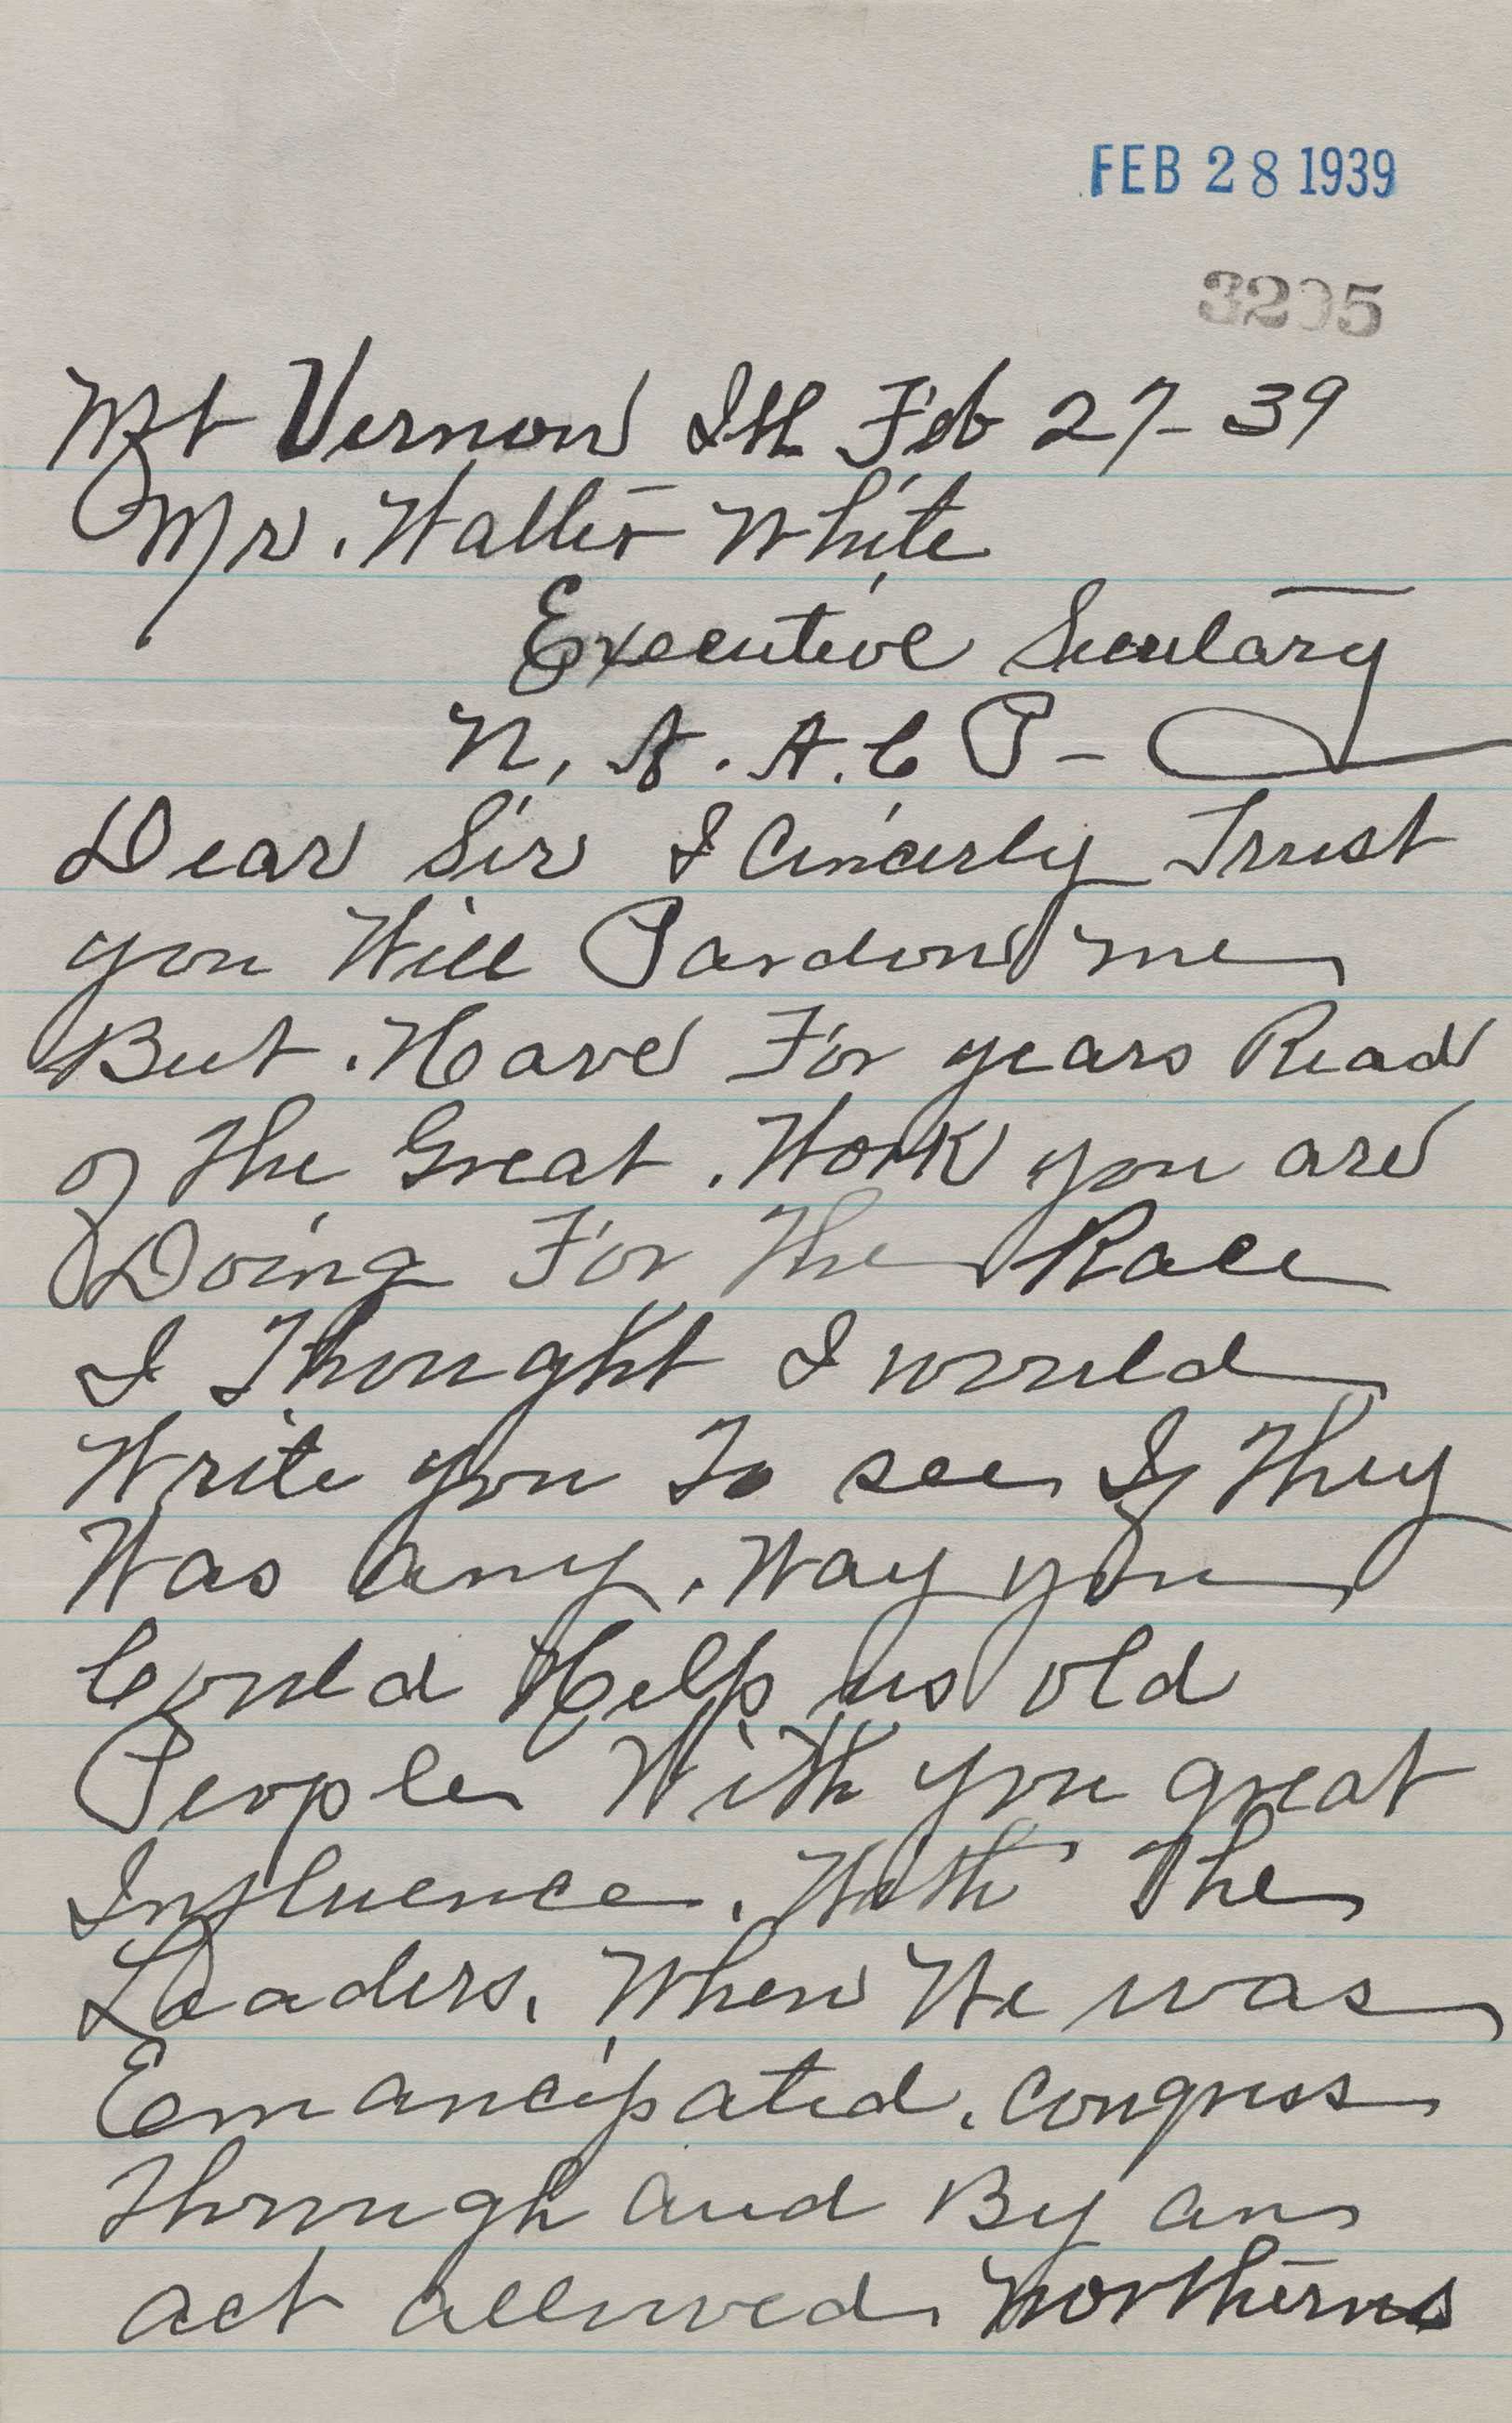 FEB 28 1939
3295
Mt Vernon Ill Feb 27-39
Mr. Walter White
Executive Secretary
N, A. A. C P-
Dear Sir I Cincerly Trust
you Will Pardon me
But. Have For years Read
of The Great. Work you are
Doing For The Race
I Thought I would
Write you To see If They
Was any. Way you
Could Help us old
People With you great
Influence. With The
Leaders. When We was
Emancipated. Congress
Through and By an
act allowed. Northerns